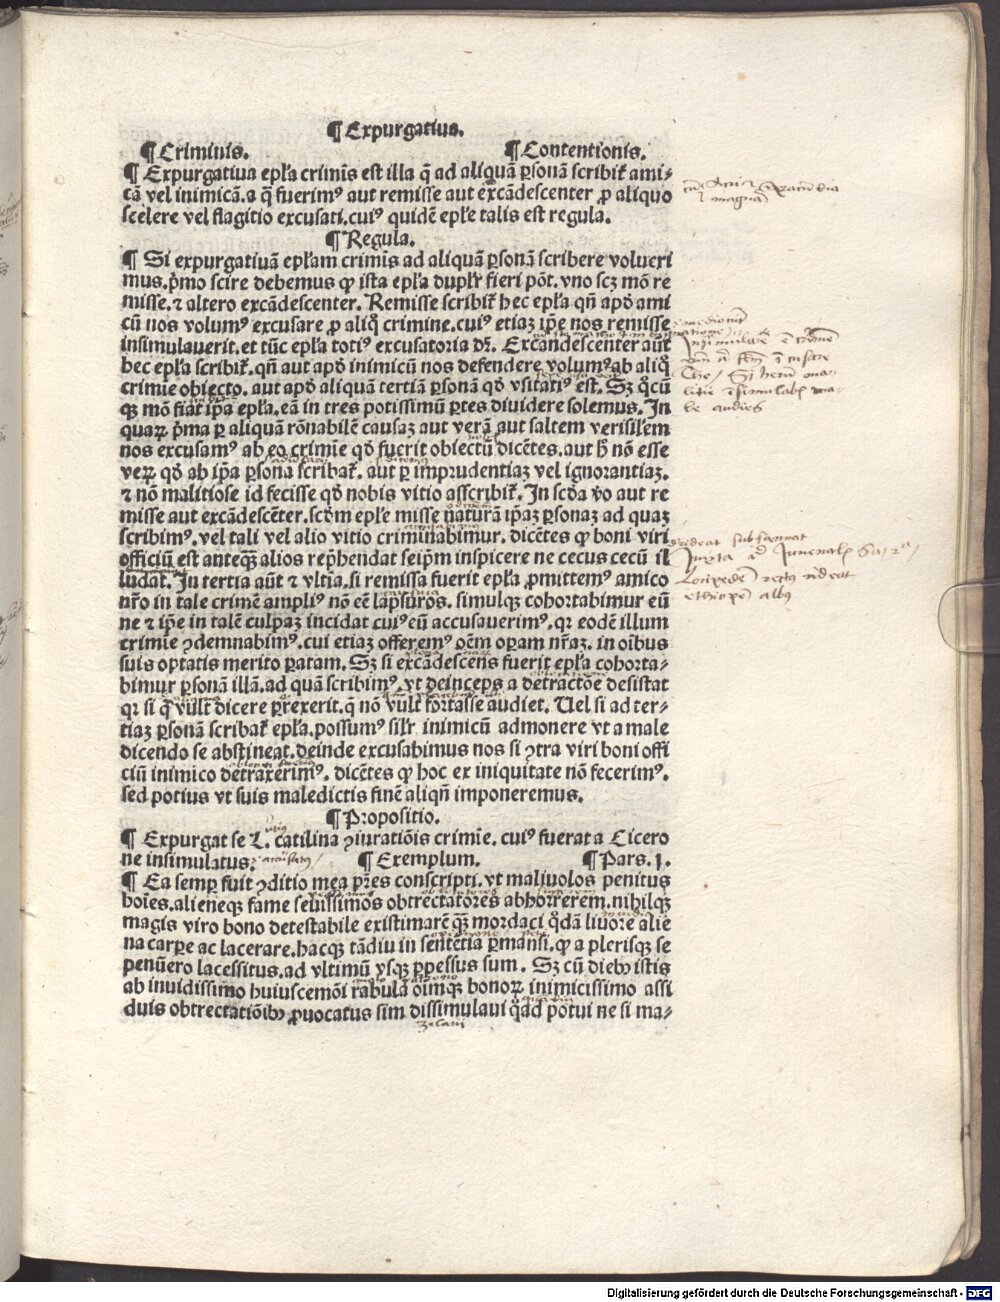 ¶ Expurgatius.
¶ Criminis. ¶ Contentionis.
¶ Expurgatiua epła crimĩs est illa q̃ ad aliquã ꝑsonã scribit᷑ ami-
cã vel inimicã. a q̃ fuerimꝰ aut remisse aut excãdescenter ꝓ aliquo
scelere vel flagitio excusati. cuiꝰ quidẽ epłe talis est regula.
¶ Regula.
¶ Si expurgatiuã epłam crimĩs ad aliquã ꝑsonã scribere volueri
mus. p̃mo scire debemus ꝙ ista epła duplr̃ fieri põt. vno scꝫ mõ re
misse. ⁊ altero excãdescenter. Remisse scribit᷑ hec epła qñ apđ ami
cũ nos volumꝰ excusare ꝓ aliq̃ crimine. cuiꝰ etiaꝫ ip̃e nos remisse
insimulauerit. et tũc epła totiꝰ excusatoria dr̃. Excãdescenter aũt
hec epła scribit᷑. qñ aut apđ inimicũ nos defendere volumꝰ ab aliq̃
crimĩe obiecto. aut apđ aliquã tertiã ꝑsonã qđ vsitatiꝰ est. Sꝫ q̃cũ
qꝫ mõ fiat ip̃a epła. eã in tres potissimũ ꝑtes diuidere solemus. In
quaꝝ p̃ma ꝑ aliquã rõnabilẽ causaꝫ aut verã aut saltem verisiłem
nos excusamꝰ ab eo crimĩe qđ fuerit obiectũ dicẽtes. aut ħ nõ esse
veꝝ qđ ab ip̃a ꝑsona scribat᷑. aut ꝑ imprudentiaꝫ vel ignorantiaꝫ.
⁊ nõ malitiose id fecisse qđ nobis vitio asscribit᷑. In scđa v̾o aut re
misse aut excãdescẽter. scđm epłe misse naturã ip̃aꝫ ꝑsonaꝫ ad quaꝫ
scribimꝰ. vel tali vel alio vitio criminabimur. dicẽtes ꝙ boni viri
officiũ est anteqꝫ̃ alios rep̃hendat seip̃m inspicere ne cecus cecũ il
ludat. In tertia aũt ⁊ vltĩa. si remissa fuerit epła ꝓmittemꝰ amico
nr̃o in tale crimẽ ampliꝰ nõ eẽ lapsuros. simulqꝫ cohortabimur eũ
ne ⁊ ip̃e in talẽ culpaꝫ incidat cuiꝰ eũ accusauerimꝰ. qꝛ eodẽ illum
crimĩe ꝯdemnabimꝰ. cui etiaꝫ offeremꝰ oẽm oꝑam nr̃aꝫ. in oĩbus
suis optatis merito ꝑatam. Sꝫ si excãdescens fuerit epła cohorta-
bimur ꝑsonã illã. ad quã scribimꝰ. vt deinceps a detractõe desistat
qꝛ si q̃ vult dicere ꝑrexerit. q̃ nõ vult fortasse audiet. Uel si ad ter-
tiaꝫ ꝑsonã scribat᷑ epła. possumꝰ silr̃ inimicũ admonere vt a male
dicendo se abstineat. deinde excusabimus nos si ꝯtra viri boni offi
ciũ inimico detraxerimꝰ. dicẽtes ꝙ hoc ex iniquitate nõ fecerimꝰ.
sed potius vt suis maledictis finẽ aliqñ imponeremus.
¶ Propositio.
¶ Expurgat se L. catilina ꝯiuratiõis crimĩe. cuiꝰ fuerat a Cicero
ne insimulatus. ¶ Exemplum. ¶ Pars. 1.
¶ Ea semꝑ fuit ꝯditio mea p̃res conscripti. vt maliuolos penitus
hoĩes. alieneqꝫ fame seuissimos obtrectatores abhorrerem. nihilqꝫ
magis viro bono detestabile existimarẽ qꝫ̃ mordaci q̊dã liuore alie
na carꝑe ac lacerare. hacqꝫ tãdiu in sentẽtia ꝑmansi. ꝙ a plerisqꝫ se
penũero lacessitus. ad vltimũ vsqꝫ ꝑpessus sum. Sꝫ cũ diebꝰ istis
ab inuidissimo huiuscemõi rabula oĩumqꝫ bonoꝝ inimicissimo assi
duis obtrectatiõibꝰ ꝓuocatus sim dissimulaui q̊ad potui ne si ma-
Digitalisierung gefördert durch die Deutsche Forschungsgemeinschaft - DFG